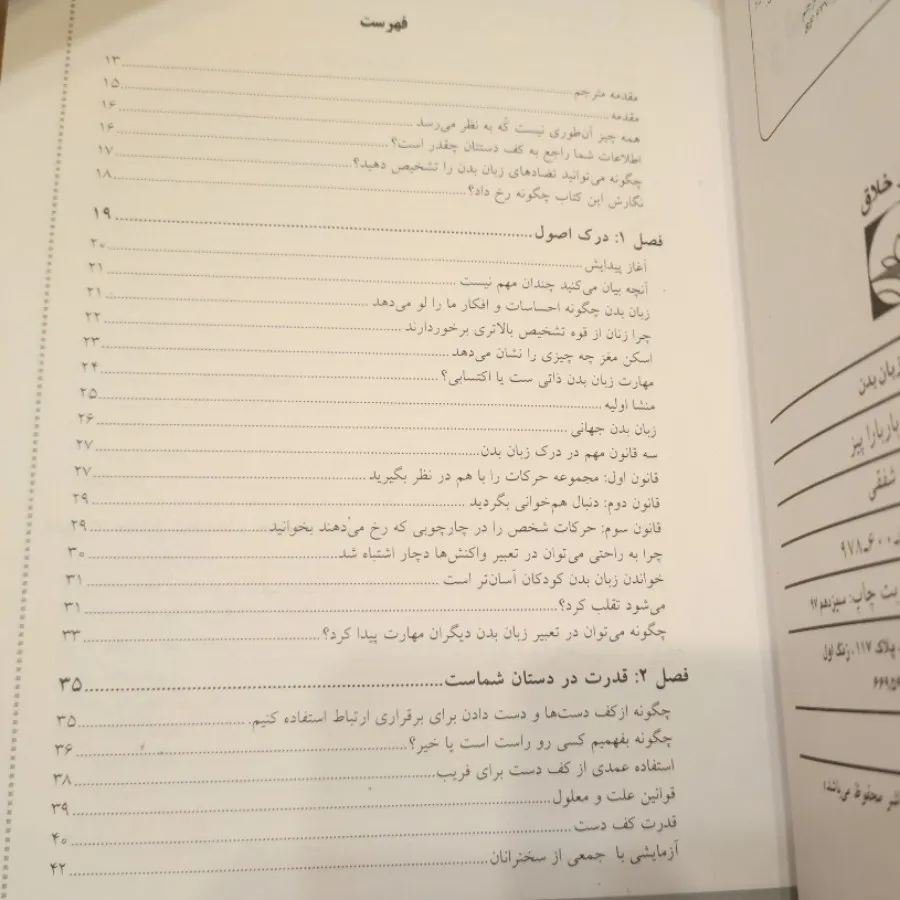 فهرست
مقدمه مترجم ۱۳
مقدمه ۱۵
همه چیز آن‌طوری نیست که به نظر می‌رسد ۱۶
اطلاعات شما راجع به کف دستتان چقدر است؟ ۱۶
چگونه می‌توانید تضادهای زبان بدن را تشخیص دهید؟ ۱۷
نگارش این کتاب چگونه رخ داد؟ ۱۸
فصل ۱: درک اصول ۱۹
آغاز پیدایش ۲۰
آنچه بیان می‌کنید چندان مهم نیست ۲۱
زبان بدن چگونه احساسات و افکار ما را لو می‌دهد ۲۱
چرا زنان از قوه تشخیص بالاتری برخوردارند ۲۲
اسکن مغز چه چیزی را نشان می‌دهد ۲۳
مهارت زبان بدن ذاتی ست یا اکتسابی؟ ۲۴
منشا اولیه ۲۵
زبان بدن جهانی ۲۶
سه قانون مهم در درک زبان بدن ۲۷
قانون اول: مجموعه حرکات را با هم در نظر بگیرید ۲۷
قانون دوم: دنبال هم‌خوانی بگردید ۲۹
قانون سوم: حرکات شخص را در چارچوبی که رخ می‌دهند بخوانید ۲۹
چرا به راحتی می‌توان در تعبیر واکنش‌ها دچار اشتباه شد ۳۰
خواندن زبان بدن کودکان آسان‌تر است ۳۱
می‌شود تقلب کرد؟ ۳۱
چگونه می‌توان در تعبیر زبان بدن دیگران مهارت پیدا کرد؟ ۳۳
فصل ۲: قدرت در دستان شماست ۳۵
چگونه ازکف دست‌ها و دست دادن برای برقراری ارتباط استفاده کنیم. ۳۵
چگونه بفهمیم کسی رو راست است یا خیر؟ ۳۶
استفاده عمدی از کف دست برای فریب ۳۸
قوانین علت و معلول ۳۹
قدرت کف دست ۴۰
آزمایشی با جمعی از سخنرانان ۴۲
خلاق
زبان بدن
باربارا پیز
شفقی
۹۷۸ـ۶۰۰ـ
نوبت چاپ: سیزدهم ۹۷
، پلاک ۱۱۷، زنگ اول
محفوظ می‌باشد؛